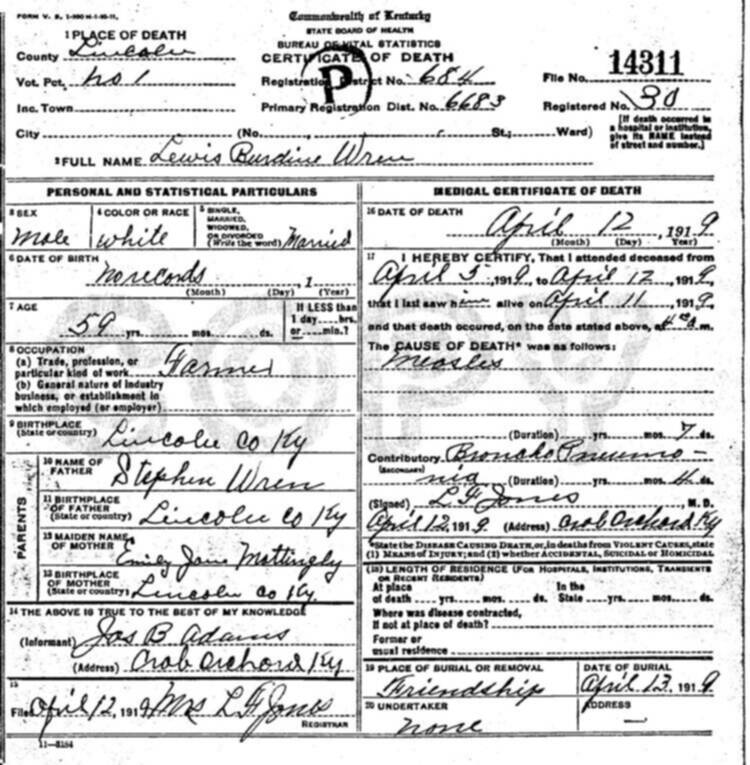 FORM V. S. 1-
Commonwealth of Kentucky
STATE BOARD OF HEALTH
BUREAU OF VITAL STATISTICS
CERTIFICATE OF DEATH
1 PLACE OF DEATH
County Lincoln
Vot. Pct. No 1
Registration District No. 684
P
File No. 14311
Inc. Town
Primary Registration Dist. No. 6683
Registered No. 30
City (No. , St.; Ward)
[If death occurred in a hospital or institution, give its NAME instead of street and number.]
2 FULL NAME Lewis Burdine Wren
PERSONAL AND STATISTICAL PARTICULARS
3 SEX
Male
4 COLOR OR RACE
white
5 SINGLE, MARRIED, WIDOWED, OR DIVORCED
(Write the word) Married
6 DATE OF BIRTH
No records , 1
(Month) (Day) (Year)
7 AGE
59 yrs. mos. ds.
If LESS than
1 day....hrs.
or....min.?
8 OCCUPATION
(a) Trade, profession, or
particular kind of work Farmer
(b) General nature of industry
business, or establishment in
which employed (or employer)
9 BIRTHPLACE
(State or country) Lincoln Co Ky
PARENTS
10 NAME OF
FATHER Stephen Wren
11 BIRTHPLACE
OF FATHER
(State or country) Lincoln Co Ky
12 MAIDEN NAME
OF MOTHER Emily Jane Mattingly
13 BIRTHPLACE
OF MOTHER
(State or country) Lincoln Co Ky
14 THE ABOVE IS TRUE TO THE BEST OF MY KNOWLEDGE
(Informant) Jas B Adams
(Address) Crab Orchard Ky
15
Filed April 12, 1919 Mrs L F Jones
REGISTRAR
11—3184
MEDICAL CERTIFICATE OF DEATH
16 DATE OF DEATH
April 12 , 1919
(Month) (Day) (Year)
17 I HEREBY CERTIFY, That I attended deceased from
April 5, 1919, to April 12, 1919,
that I last saw him alive on April 11, 1919,
and that death occured, on the date stated above, at m.
The CAUSE OF DEATH* was as follows:
Measles
(Duration) yrs. mos. 7 ds.
Contributory Broncho Pneumo-
(SECONDARY)
nia (Duration) yrs. mos. 4 ds.
(Signed) L F Jones , M. D.
April 12, 1919 (Address) Crab Orchard Ky
*State the DISEASE CAUSING DEATH, or, in deaths from VIOLENT CAUSES, state
(1) MEANS OF INJURY; and (2) whether ACCIDENTAL, SUICIDAL or HOMICIDAL
(18) LENGTH OF RESIDENCE (FOR HOSPITALS, INSTITUTIONS, TRANSIENTS
OR RECENT RESIDENTS)
At place In the
of death yrs. mos. ds. State yrs. mos. ds.
Where was disease contracted,
if not at place of death?
Former or
usual residence
19 PLACE OF BURIAL OR REMOVAL
Friendship
DATE OF BURIAL
April 13, 1919
20 UNDERTAKER
none
ADDRESS
—
COPY